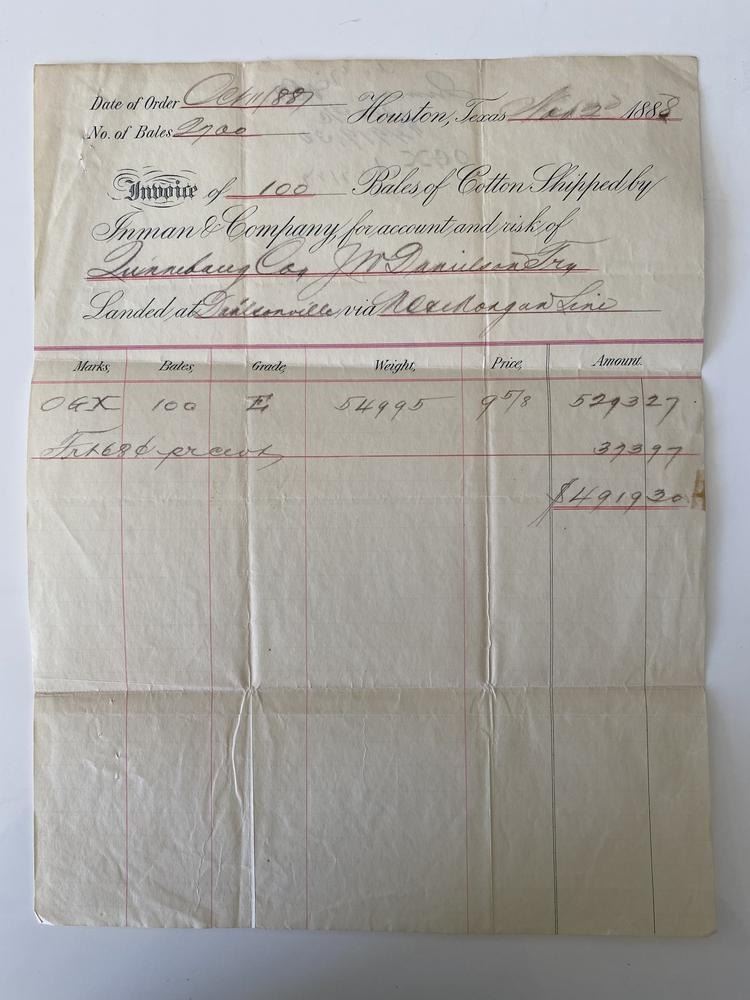 Date of Order Oct 11/887 Houston, Texas 1888
No. of Bales 2700
Invoice of 100 Bales of Cotton Shipped by
Inman & Company, for account and risk of
Quinnebaug Coy J W Danielson Try
Landed at Danielsonville via Morgan Line
Marks, Bales, Grade, Weight, Price, Amount.
OGX 100 E 54995 9 5/8 5293 27
Frt 68 ¢ pr cwt, 373 97
$4919 30